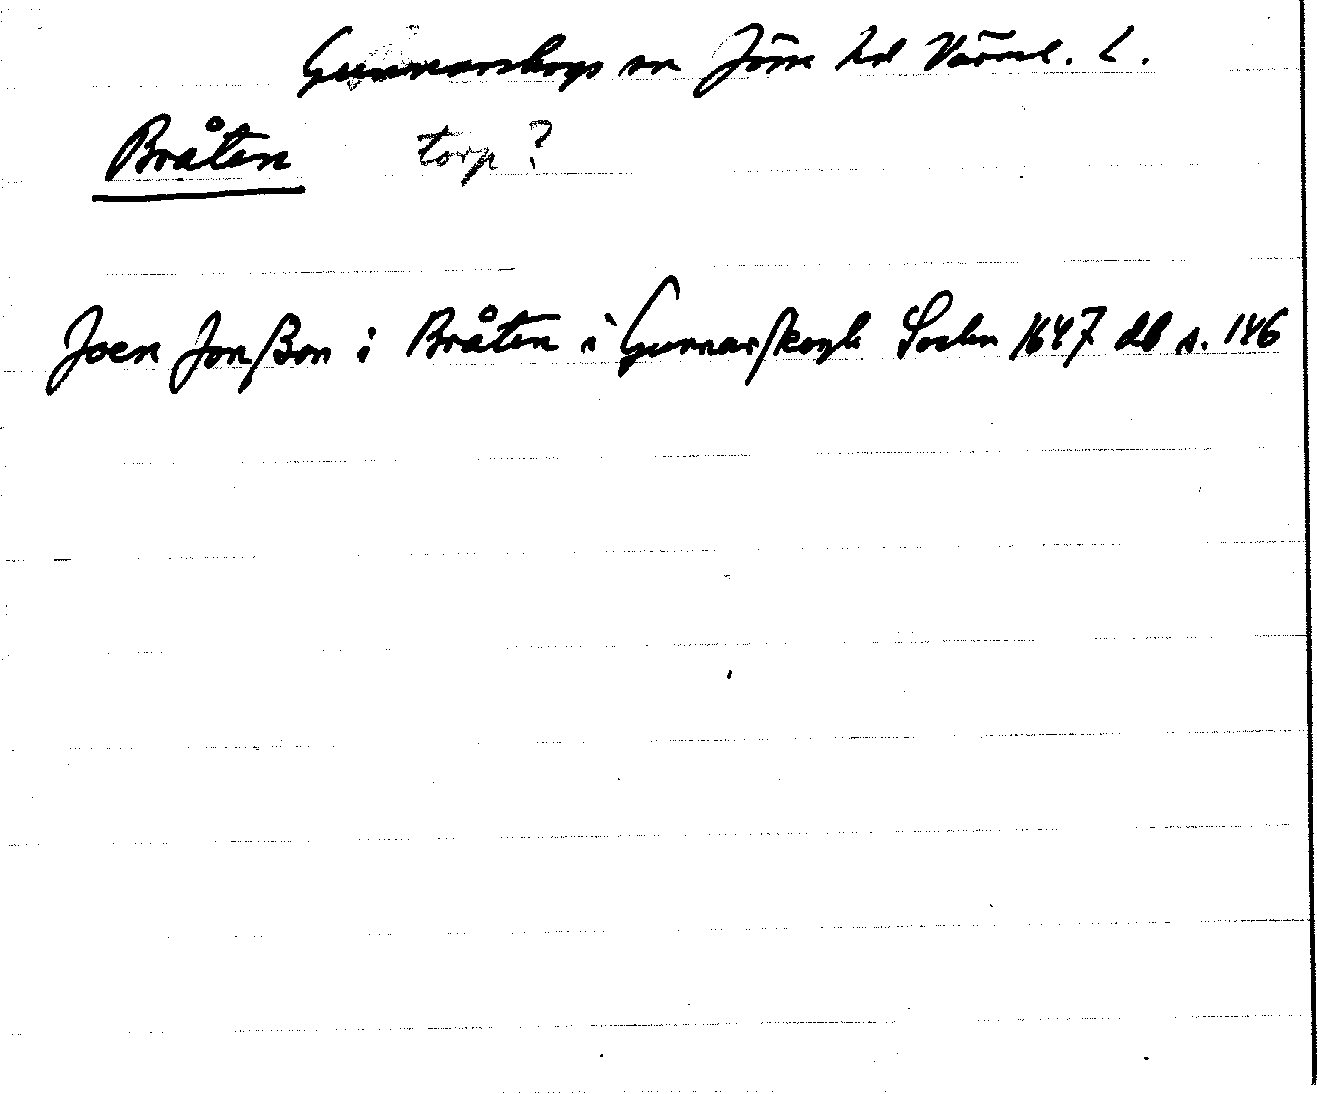 Gunnarskogs sn Jösse hd Värml. L.
Bråten torp?
Joen Jonßon i Bråten i Gunnarskogh Sochn 1647 db s. 146